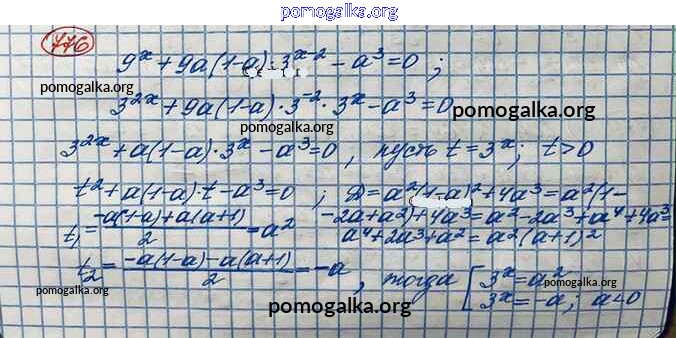 pomogalka.org
776
9^x + 9a(1-a)·3^{x-2} - a³ = 0 ;
pomogalka.org
3^{2x} + 9a(1-a)·3^{-2}·3^x - a³ = 0
pomogalka.org
pomogalka.org
3^{2x} + a(1-a)·3^x - a³ = 0 , пусть t = 3^x ; t > 0
pomogalka.org
pomogalka.org
t² + a(1-a)·t - a³ = 0 ; D = a²(1-a)² + 4a³ = a²(1-
-2a+a²)+4a³ = a²-2a³+a⁴+4a³ =
t₁ = (-a(1-a)+a(a+1))/2 = a²
a⁴+2a³+a² = a²(a+1)²
t₂ = (-a(1-a)-a(a+1))/2 = -a , тогда [ 3^x = a²
3^x = -a ; a<0
pomogalka.org
pomogalka.org
pomogalka.org